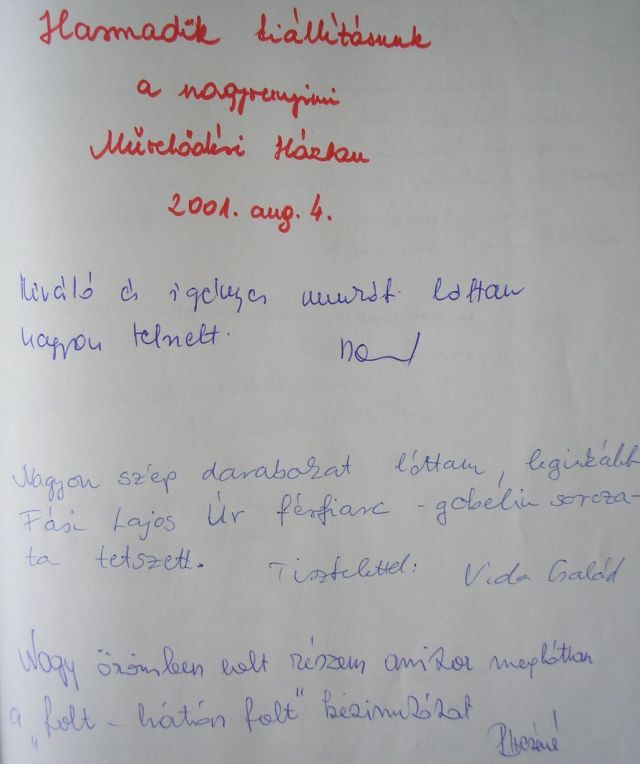 Harmadik kiállításunk
a nagyvenyimi
Művelődési Házban
2001. aug. 4.
Kiváló és igényes munkát láttam
nagyon tetszett.
Nagyon szép darabokat láttam, leginkább
Fási Lajos Úr férfiarc - gobelin soroza-
ta tetszett. Tisztelettel: Vida Család
Nagy örömben volt részem amikor megláttam
a „folt - hátán folt" kézimunkákat